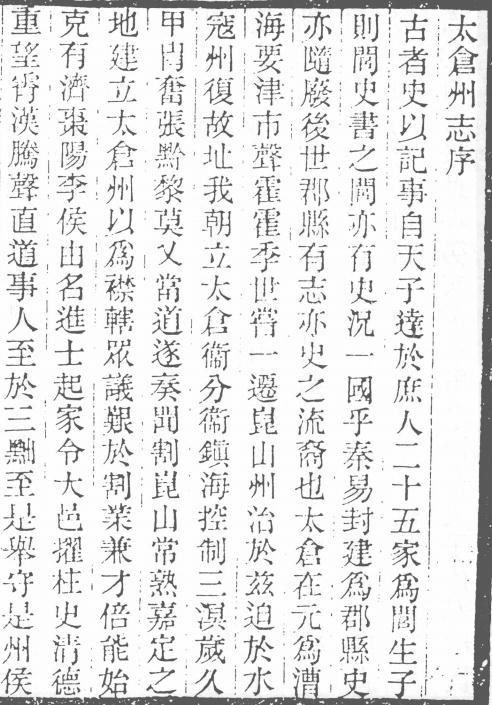 太倉州志序
古者史以記事自天子達於庶人二十五家爲閭生子
則閭史書之閭亦有史況一國乎秦易封建爲郡縣史
亦隨廢後世郡縣有志亦史之流裔也太倉在元爲漕
海要津市聲霍霍季世嘗一遷崑山州治於兹迫於水
寇州復故址我朝立太倉衞分衞鎭海控制三溟歲久
甲冑奮張黔黎莫乂當道遂奏聞割崑山常熟嘉定之
地建立太倉州以爲襟轄眾議艱於割業兼才倍能始
克有濟棗陽李侯由名進士起家令大邑擢柱史清德
重望霄漢騰聲直道事人至於三黜至是舉守是州侯